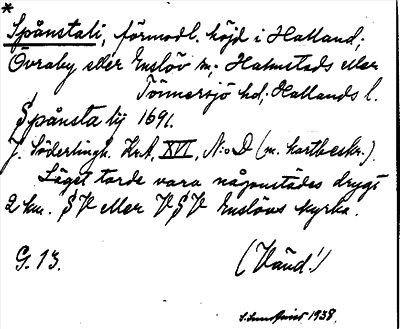 *
Spånstali, förmodl. höjd i Halland;
Övraby eller Enslöv sn; Halmstads eller
Tönnersjö hd; Hallands l.
Spånsta lij 1691.
J. Söderlingh. KrA, XVI, N:o D (m. kartbeskr.).
Läget torde vara någonstädes drygt
2 km. SV eller VSV Enslövs kyrka.
G. 13. (Vänd!)
1938.